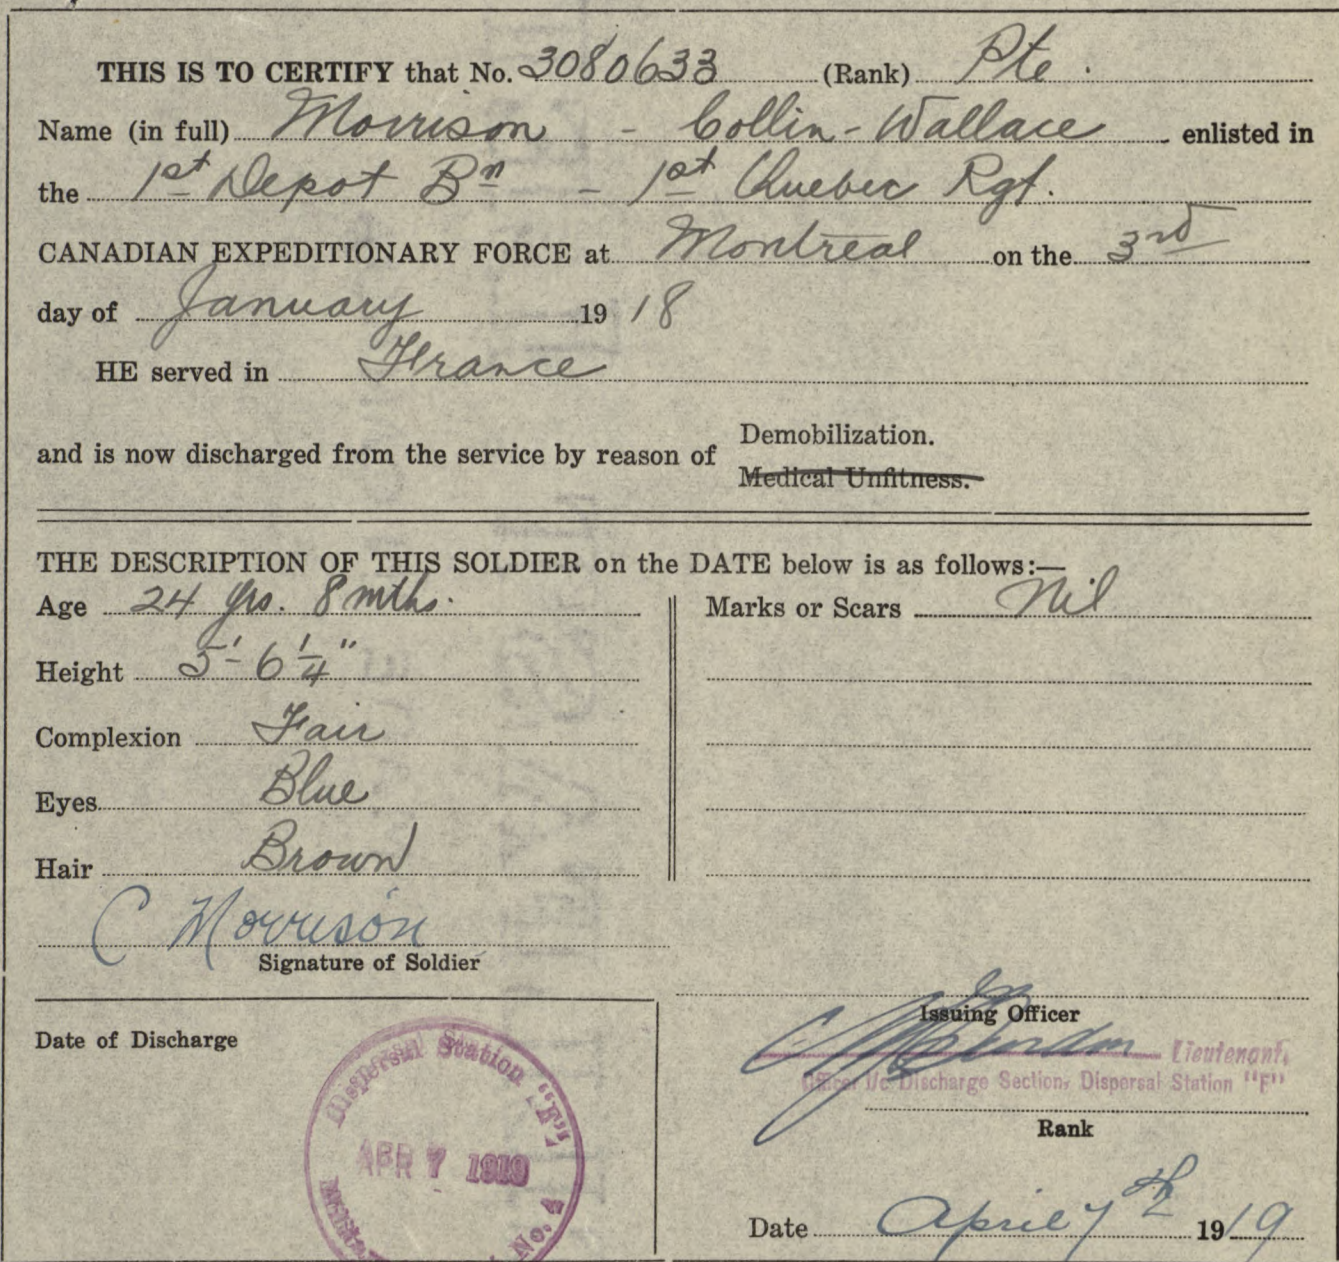 THIS IS TO CERTIFY that No. 3080633 (Rank) Pte.
Name (in full) Morrison - Collin - Wallace enlisted in
the 1st Depot Bn - 1st Quebec Rgt.
CANADIAN EXPEDITIONARY FORCE at Montreal on the 3rd
day of January 1918
HE served in France
and is now discharged from the service by reason of Demobilization.
Medical Unfitness.
THE DESCRIPTION OF THIS SOLDIER on the DATE below is as follows:—
Age 24 yrs. 8 mths.
Height 5'- 6 1/4"
Complexion Fair
Eyes Blue
Hair Brown
Marks or Scars Nil
C Morrison
Signature of Soldier
Date of Discharge
Dispersal Station "F"
APR 7 1919
No. 4
Issuing Officer
Lieutenant,
Officer i/c Discharge Section, Dispersal Station "F"
Rank
Date April 7th 1919